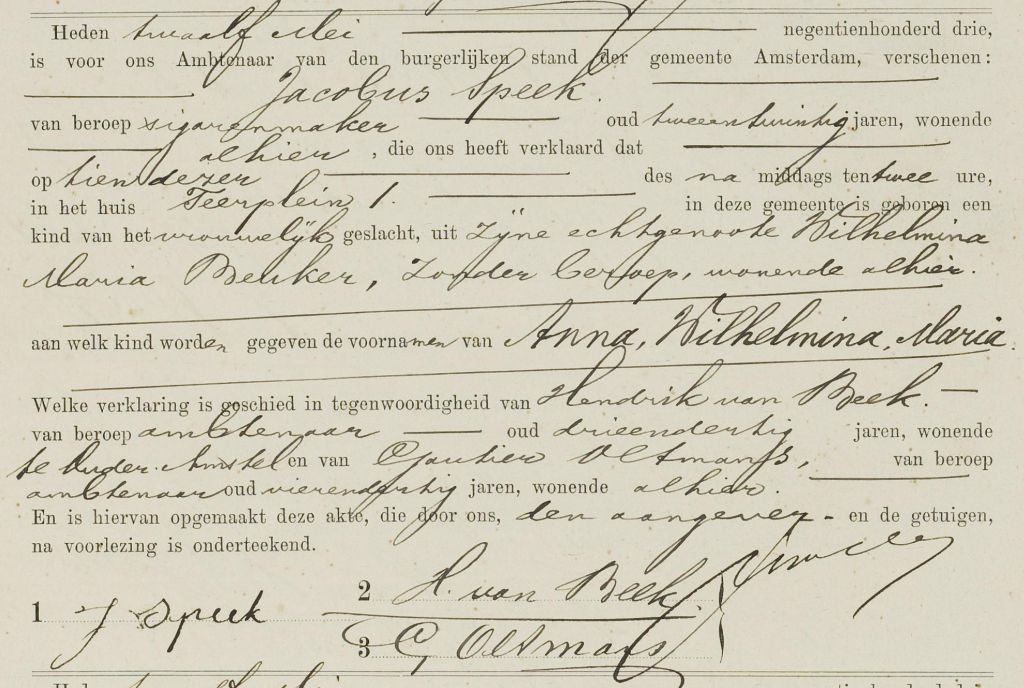 Heden twaalf Mei negentienhonderd drie,
is voor ons Ambtenaar van den burgerlijken stand der gemeente Amsterdam, verschenen:
Jacobus Speek.
van beroep sigarenmaker oud tweeentwintig jaren, wonende
alhier, die ons heeft verklaard dat
op tien dezer des na middags ten twee ure,
in het huis Teerplein 1. in deze gemeente is geboren een
kind van het vrouwelijk geslacht, uit zijne echtgenoote Wilhelmina
Maria Beuker, zonder beroep, wonende alhier.
aan welk kind worden gegeven de voornamen van Anna, Wilhelmina, Maria.
Welke verklaring is geschied in tegenwoordigheid van Hendrik van Beek.
van beroep ambtenaar oud drieendertig jaren, wonende
te Ouder-Amstel en van Gautier Oltmans, van beroep
ambtenaar oud vierendertig jaren, wonende alhier.
En is hiervan opgemaakt deze akte, die door ons, den aangever - en de getuigen,
na voorlezing is onderteekend.
1 J Speek
2 H. van Beek
3 G, Oltmans